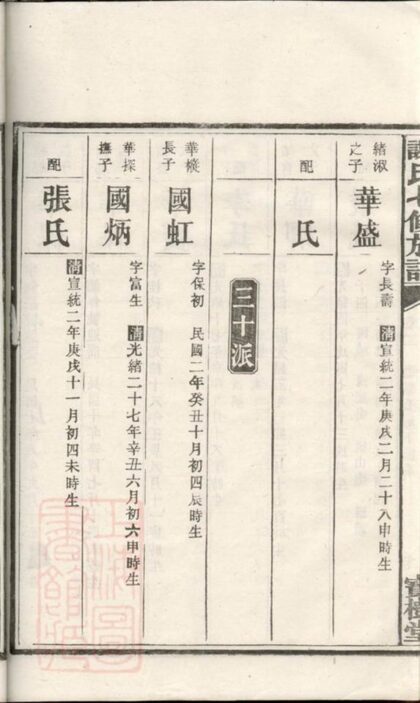 緒淑之子
華盛
字長壽 清宣統二年庚戌二月二十八申時生
配
氏
三十派
華樅長子
國虹
字保初 民國二年癸丑十月初四辰時生
華探撫子
國炳
字富生 清光緒二十七年辛丑六月初六申時生
配
張氏
清宣統二年庚戌十一月初四未時生